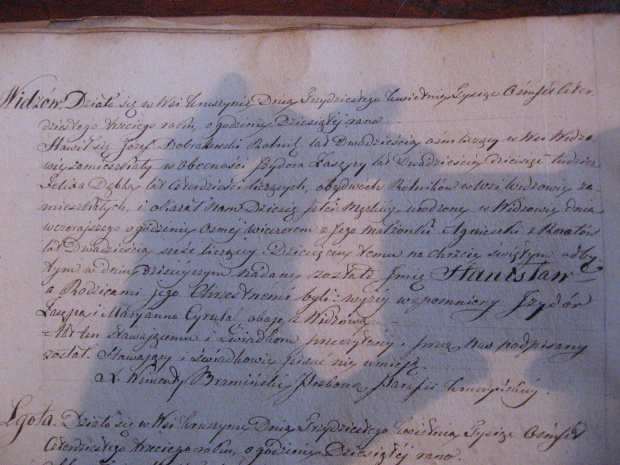 Widzów. Działo się w Wsi Kruszynie Dnia Trzydziestego Kwietnia Tysiąc Ośmset Czter-
dziestego trzeciego roku, o godzinie Dziesiątéj rano.
Stawił się Józef Dobrakowski Rolnik lat Dwadzieścia ośm liczący w Wsi Widzo-
wie zamieszkały w obecności Izydora Łaszyra lat Dwadzieścia dziewięć tudzież
Felixa Dębka lat Czterdzieści liczących, obydwóch Rolników w Wsi Widzowie za-
mieszkałych, i okazał nam Dziecię płci Męzkiej urodzone w Widzowie dnia
wczorajszego o godzinie Osmej wieczorem z jego małżonki Agnieszki z
lat Dwadzieścia sześć liczącej. Dziecięciu temu na chrzcie świętym odby-
tym w dniu dzisiejszym nadane zostało Imię Stanisław
a Rodzicami jego Chrzestnemi byli: wyżej wspomniony Izydór
Łaszyra i Maryanna Cyruła, oboje z Widzowa.
Akt ten stawającemu i świadkom przeczytany i przez Nas podpisany
został. Stawający i świadkowie pisać nie umieją.
X. Wincenty Bramiński Pleban Parafii Kruszyńskiéj.
Lgota. Działo się w Wsi Kruszynie Dnia Trzydziestego Kwietnia Tysiąc Ośmset
Czterdziestego trzeciego roku, o godzinie Dziesiątéj rano.